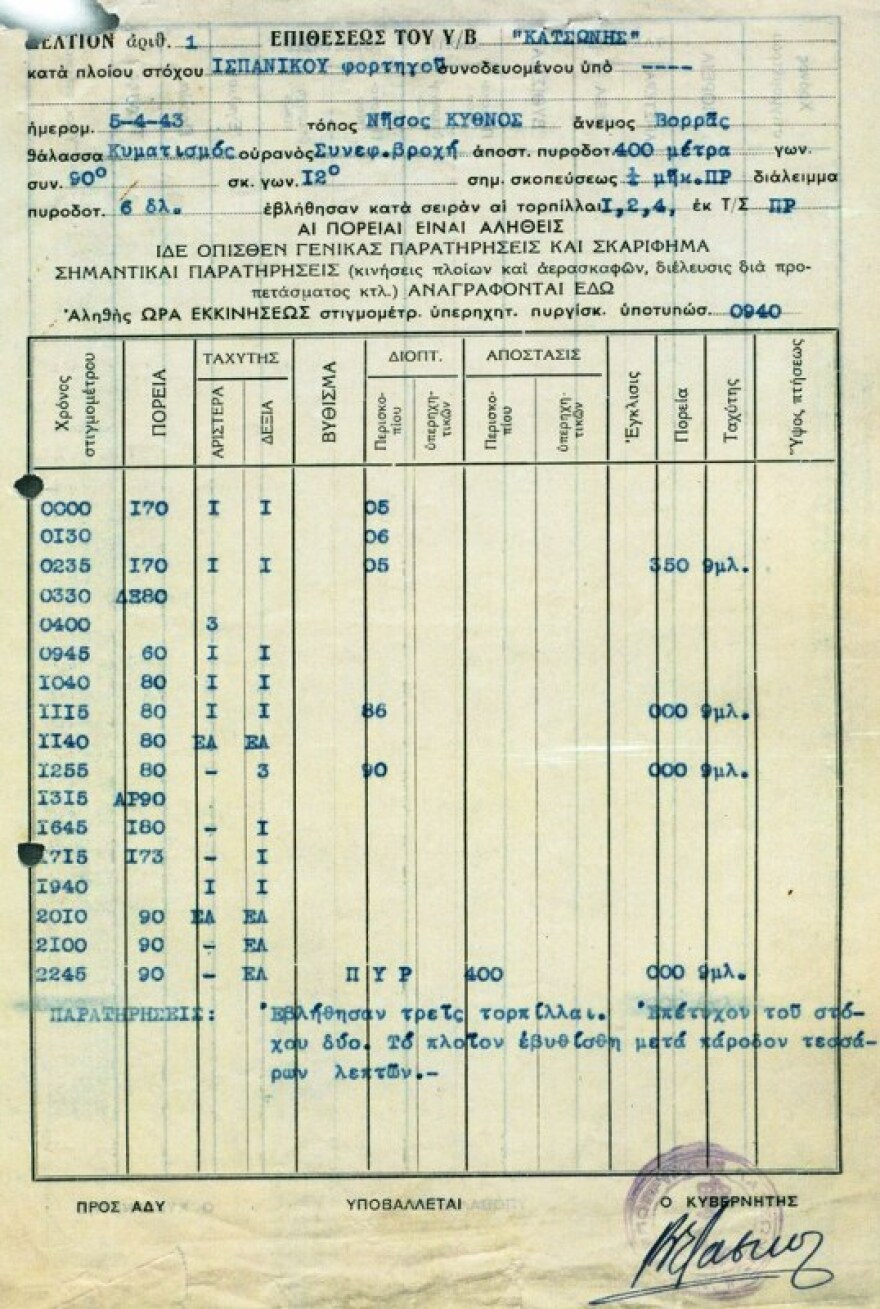 ΔΕΛΤΙΟΝ ἀριθ. 1 ΕΠΙΘΕΣΕΩΣ ΤΟΥ Υ/Β "ΚΑΤΣΩΝΗΣ"
κατὰ πλοίου στόχου ΙΣΠΑΝΙΚΟΥ φορτηγοῦ συνοδευομένου ὑπὸ ----
ἡμερομ. 5-4-43 τόπος Νῆσος ΚΥΘΝΟΣ ἄνεμος Βορρᾶς
θάλασσα Κυματισμός οὐρανὸς Συνεφ.βροχή ἀποστ. πυροδοτ. 400 μέτρα γων.
συν. 90° σκ. γων. Ι2° σημ. σκοπεύσεως ½ μῆκ.ΠΡ διάλειμμα
πυροδοτ. 6 δλ. ἐβλήθησαν κατὰ σειρὰν αἱ τορπίλλαι Ι,2,4, ἐκ Τ/Σ ΠΡ
ΑΙ ΠΟΡΕΙΑΙ ΕΙΝΑΙ ΑΛΗΘΕΙΣ
ΙΔΕ ΟΠΙΣΘΕΝ ΓΕΝΙΚΑΣ ΠΑΡΑΤΗΡΗΣΕΙΣ ΚΑΙ ΣΚΑΡΙΦΗΜΑ
ΣΗΜΑΝΤΙΚΑΙ ΠΑΡΑΤΗΡΗΣΕΙΣ (κινήσεις πλοίων καὶ ἀερασκαφῶν, διέλευσις διὰ προ-
πετάσματος κτλ.) ΑΝΑΓΡΑΦΟΝΤΑΙ ΕΔΩ
Ἀληθὴς ΩΡΑ ΕΚΚΙΝΗΣΕΩΣ στιγμομέτρ. ὑπερηχητ. πυργίσκ. ὑποτυπώσ. 0940
Χρόνος στιγμομέτρου ΠΟΡΕΙΑ ΤΑΧΥΤΗΣ ΒΥΘΙΣΜΑ ΔΙΟΠΤ. ΑΠΟΣΤΑΣΙΣ Ἔγκλισις Πορεία Ταχύτης Ὕψος πτήσεως
ΑΡΙΣΤΕΡΑ ΔΕΞΙΑ Περισκοπίου ὑπερηχητικῶν Περισκοπίου ὑπερηχητικῶν
0000 Ι70 Ι Ι 05
0Ι30 06
0235 Ι70 Ι Ι 05 350 9μλ.
0330 ΔΕ80
0400 3
0945 60 Ι Ι
Ι040 80 Ι Ι
ΙΙΙ5 80 Ι Ι 86 000 9μλ.
ΙΙ40 80 ΕΛ ΕΛ
Ι255 80 - 3 90 000 9μλ.
Ι3Ι5 ΑΡ90
Ι645 Ι80 - Ι
Ι7Ι5 Ι73 - Ι
Ι940 Ι Ι
20Ι0 90 ΕΛ ΕΛ
2Ι00 90 - ΕΛ
2245 90 - ΕΛ Π Υ Ρ 400 000 9μλ.
ΠΑΡΑΤΗΡΗΣΕΙΣ: Ἐβλήθησαν τρεῖς τορπίλλαι. Ἐπέτυχον τοῦ στό-
χου δύο. Τό πλοῖον ἐβυθίσθη μετά πάροδον τεσσά-
ρων λεπτῶν.-
ΠΡΟΣ ΑΔΥ ΥΠΟΒΑΛΛΕΤΑΙ Ο ΚΥΒΕΡΝΗΤΗΣ